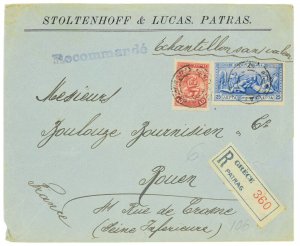 STOLTENHOFF & LUCAS. PATRAS.
Recommandé
Echantillon sans valeur
Messieurs
Toulouze Tournisien & Cie
Rouen
41 Rue de Crosne
(Seine Inférieure)
France
R
GRÈCE
PATRAS
360